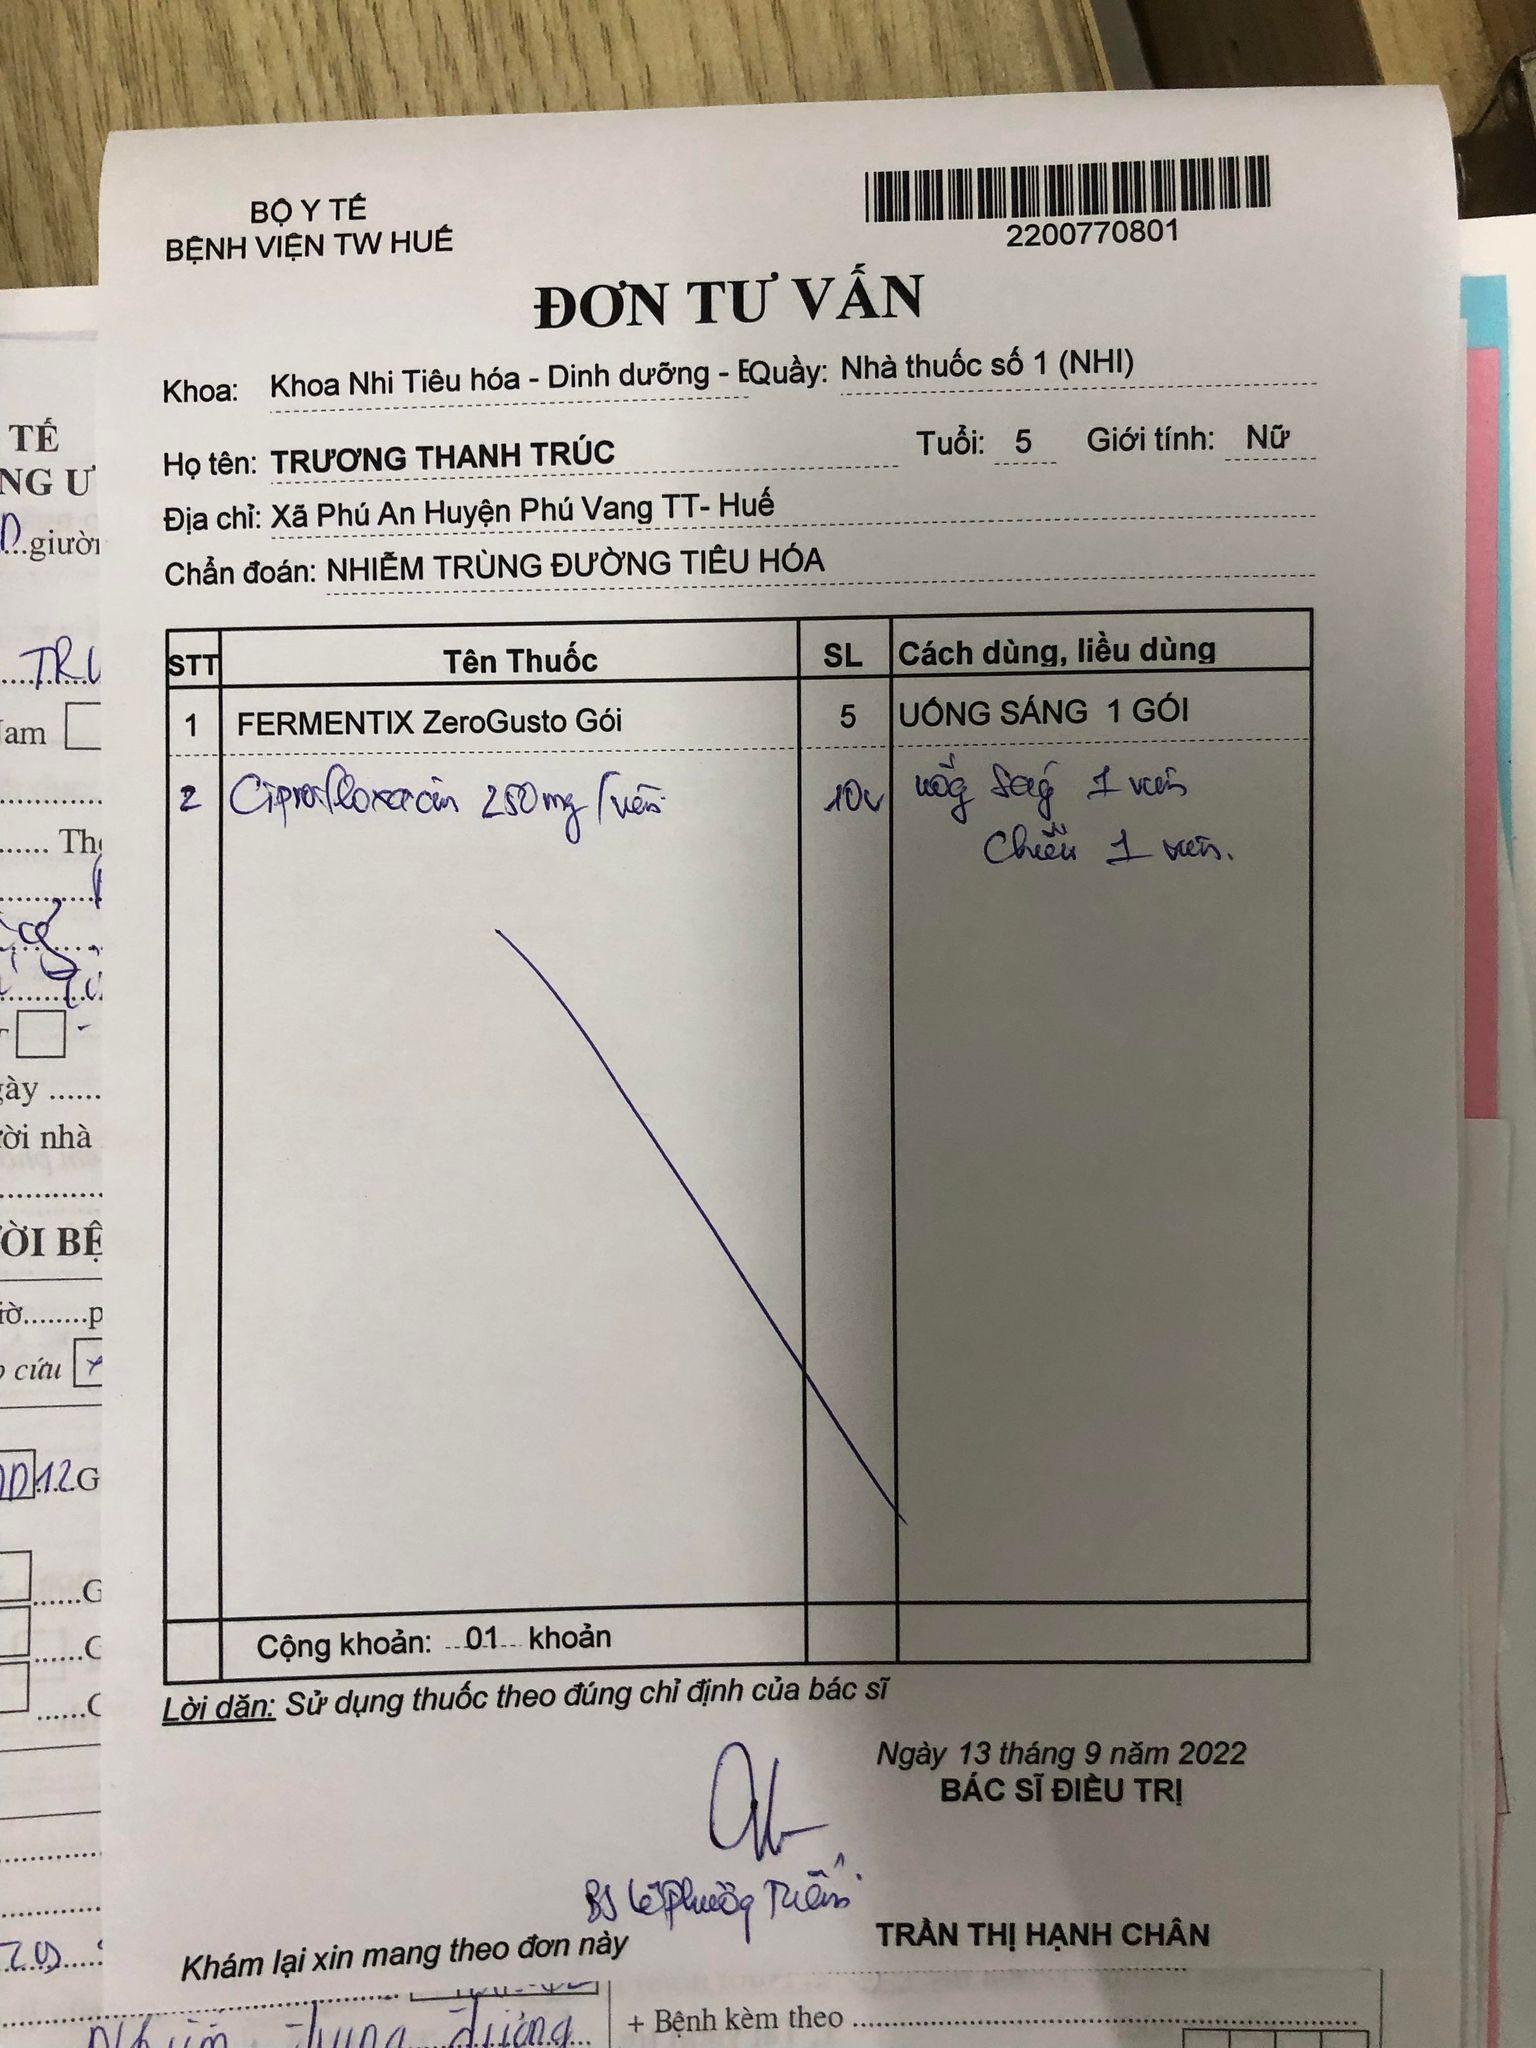 BỘ Y TẾ
BỆNH VIỆN TW HUẾ
2200770801
ĐƠN TƯ VẤN
Khoa: Khoa Nhi Tiêu hóa - Dinh dưỡng - Quầy: Nhà thuốc số 1 (NHI)
Họ tên: TRƯƠNG THANH TRÚC Tuổi: 5 Giới tính: Nữ
Địa chỉ: Xã Phú An Huyện Phú Vang TT- Huế
Chẩn đoán: NHIỄM TRÙNG ĐƯỜNG TIÊU HÓA
STT Tên Thuốc SL Cách dùng, liều dùng
1 FERMENTIX ZeroGusto Gói 5 UỐNG SÁNG 1 GÓI
2 Ciprofloxacin 250mg/viên 10v uống sáng 1 viên
Chiều 1 viên.
Cộng khoản: 01 khoản
Lời dăn: Sử dụng thuốc theo đúng chỉ định của bác sĩ
Ngày 13 tháng 9 năm 2022
BÁC SĨ ĐIỀU TRỊ
BS Lê Phương
TRẦN THỊ HẠNH CHÂN
Khám lại xin mang theo đơn này
TẾ
NG Ư
giườn
TRU
Nam
cứu
12G
+ Bệnh kèm theo
đường